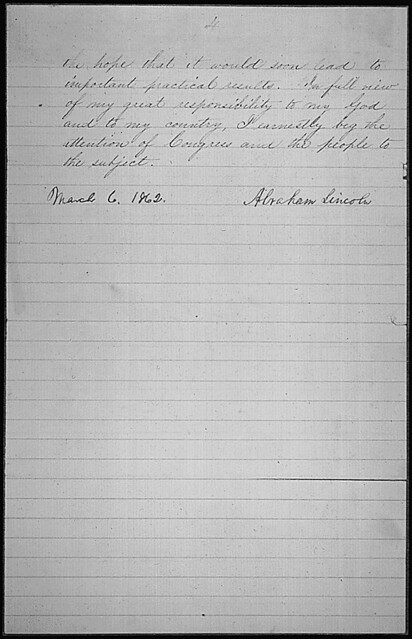 4
in hope that it would soon lead to
important practical results. In full view
of my great responsibility to my God
and to my country, I earnestly beg the
attention of Congress and the people to
the subject.
March 6. 1862. Abraham Lincoln